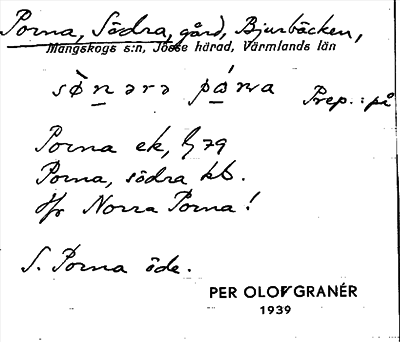 Porna, Södra, gård, Bjurbäcken,
Mangskogs s:n, Jösse härad, Värmlands län
sø̀nərə pɷ́rna Prep.: på
Porna ek, 79
Porna, södra kb.
Jfr Norra Porna!
S. Porna öde.
PER OLOF GRANÉR
1939